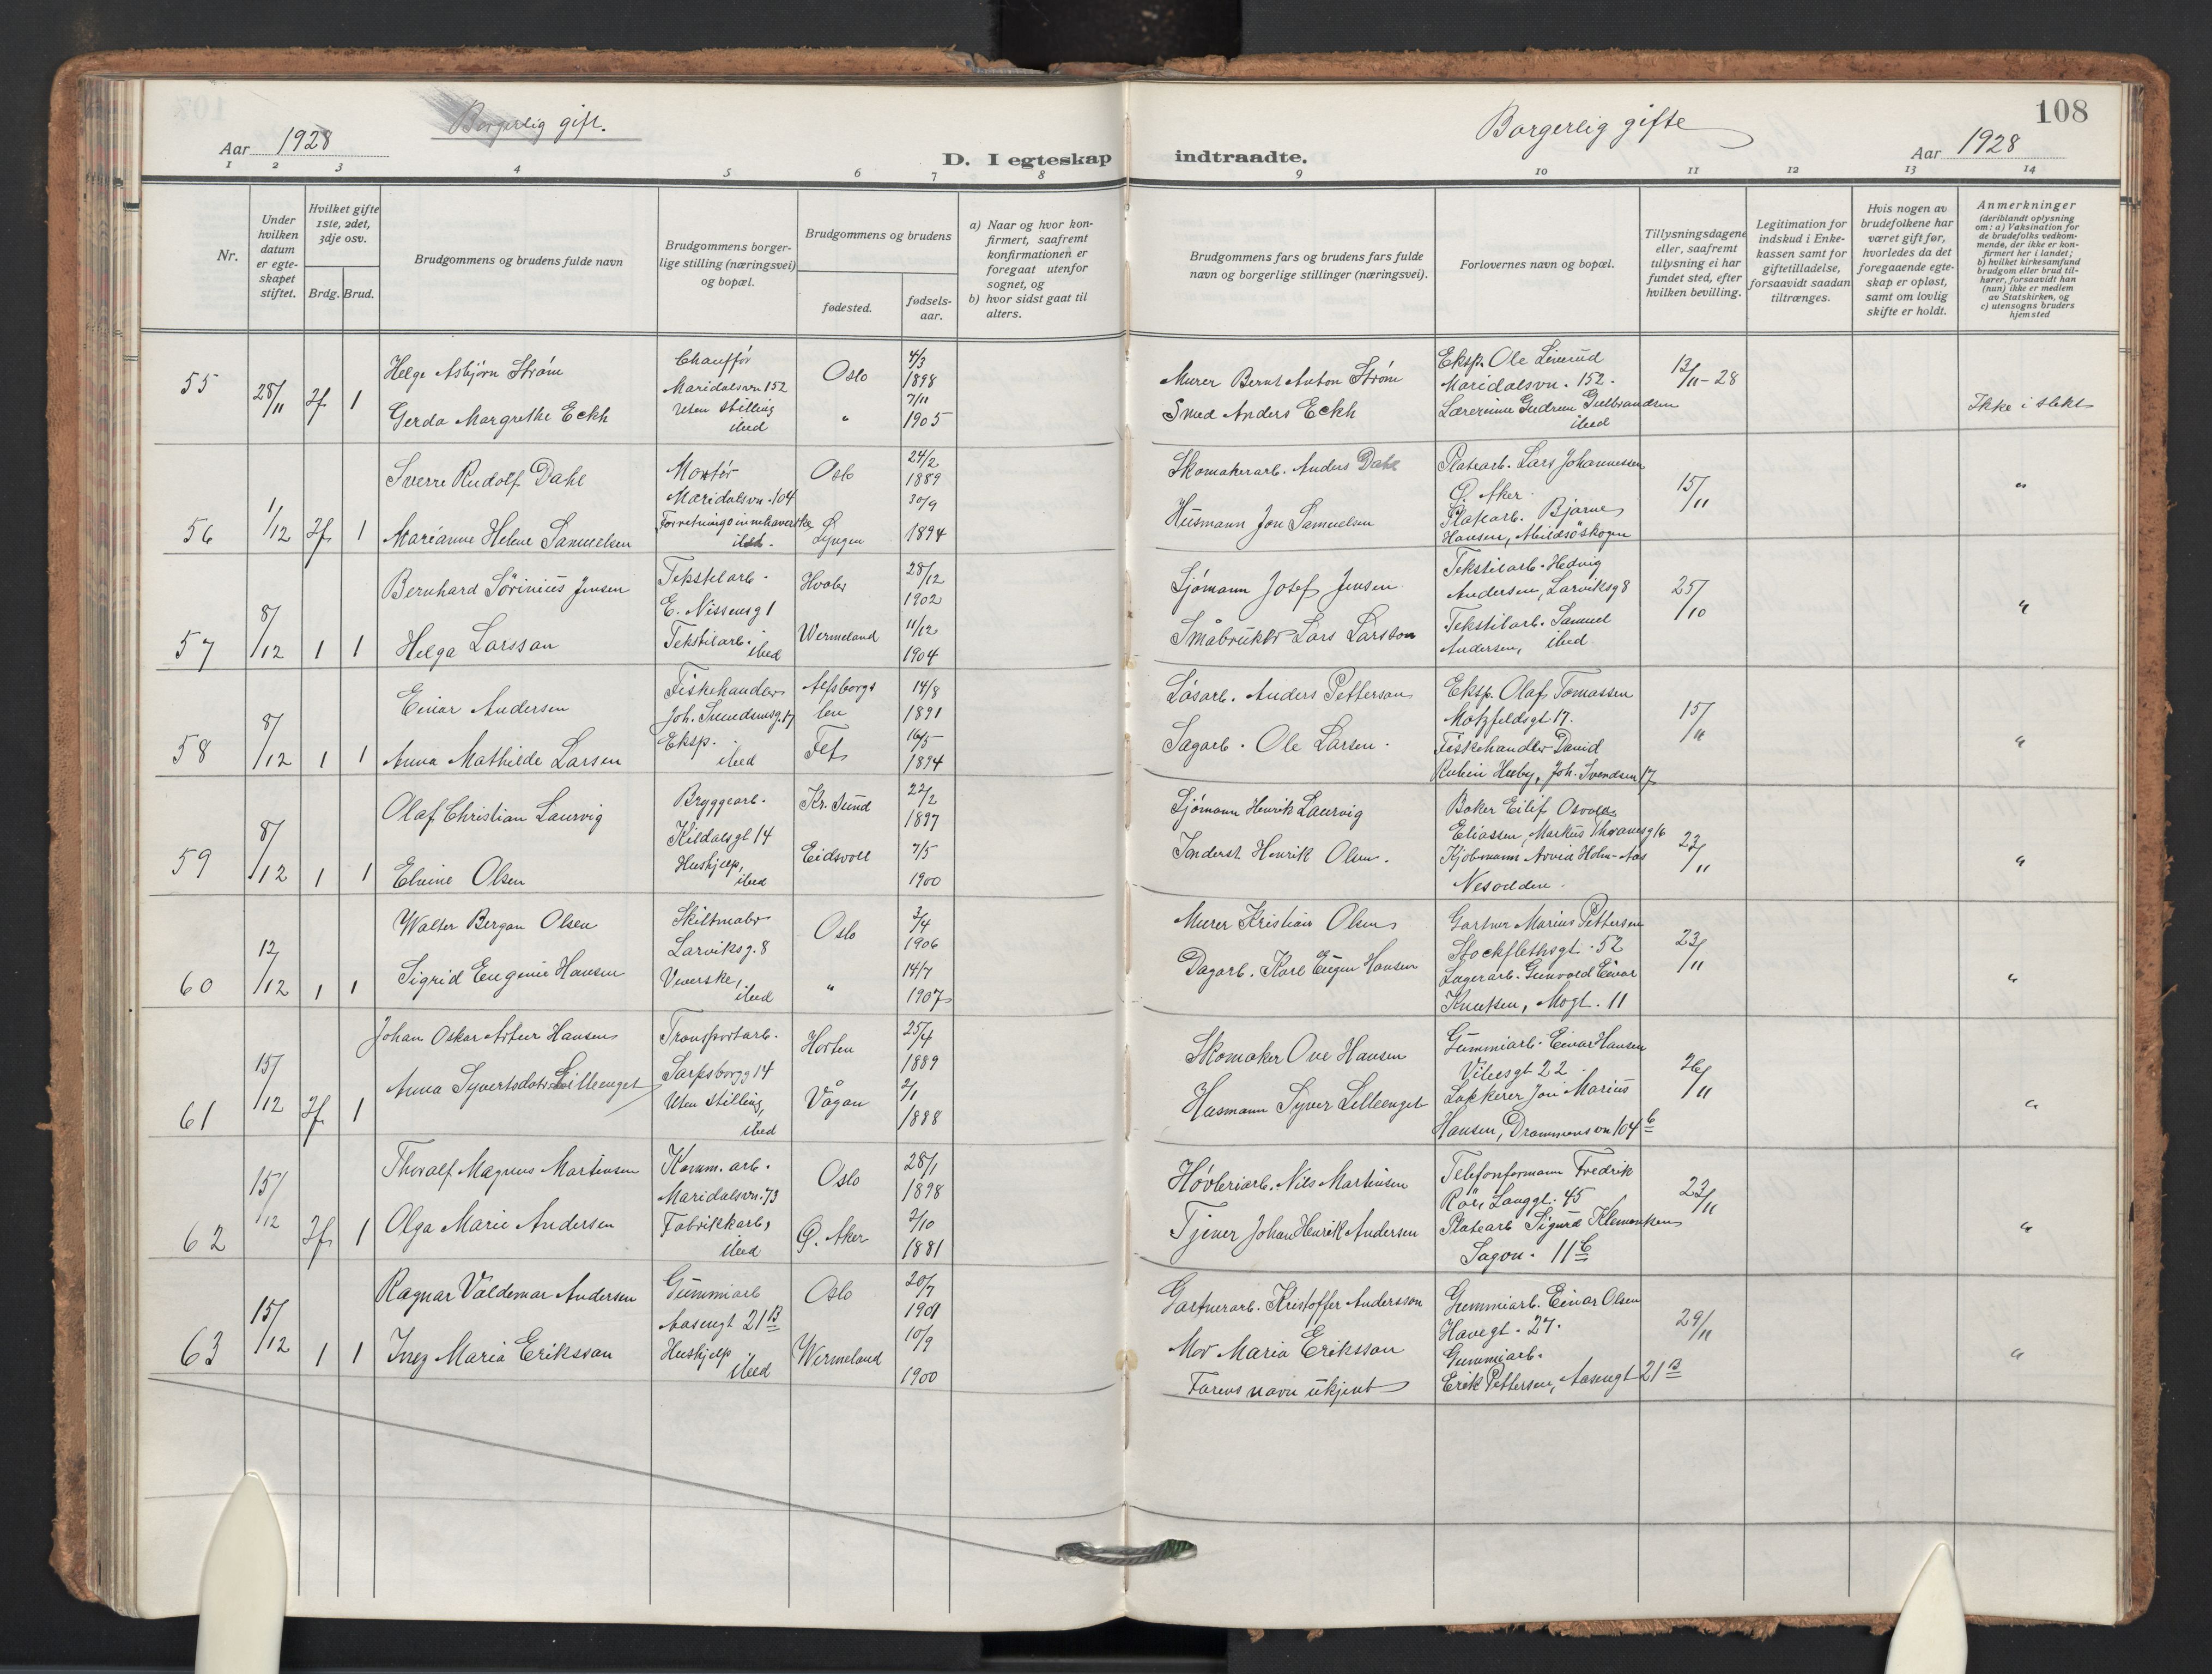 Aar 1928
Borgerlig gift.
D. I egteskap
1 2 3 4 5 6 7 8
Nr.
Under hvilken datum er egteskapet stiftet.
Hvilket gifte 1ste, 2det, 3dje osv.
Brdg. Brud.
Brudgommens og brudens fulde navn
Brudgommens borgerlige stilling (næringsvei) og bopæl.
Brudgommens og brudens
fødested.
fødselsaar.
a) Naar og hvor konfirmert, saafremt konfirmationen er foregaat utenfor sognet, og
b) hvor sidst gaat til alters.
55 28/11 Jf 1
Helge Asbjörn Ström
Chauffør
Maridalsvn 152
Oslo
4/3
1898
Gerda Margrethe Eckh
Uten stilling
ibed
"
7/11
1905
56 1/12 Jf 1
Sverre Rudolf Dahl
Montör
Maridalsvn. 104
Oslo
24/2
1889
Marianne Helene Samuelsen
Forretningsinnehaverske
ibed.
Lyngen
30/9
1894
57 8/12 1 1
Bernhard Sörinius Jensen
Tekstilarb.
E. Nissensg 1
Hvaler
28/12
1902
Helga Larsson
Tekstilarb.
ibed
Wermeland
11/12
1904
58 8/12 1 1
Einar Andersen
Fiskehandler
Joh. Svendsensg. 17
Alfsborgs
len
14/8
1891
Anna Mathilde Larsen
Eksp.
ibed
Fet
16/5
1894
59 8/12 1 1
Olaf Christian Laurvig
Bryggearb.
Kildalsgt 14
Kr. Sund
22/2
1897
Elvine Olsen
Hushjelp,
ibed
Eidsvoll
7/5
1900
60 12/12 1 1
Walter Bergan Olsen
Skiltmaler
Larviksg. 8
Oslo
3/4
1906
Sigrid Eugenie Hansen
Veverske,
ibed
"
14/7
1907
61 15/12 Jf 1
Johan Oskar Artur Hansen
Transportarb.
Sarpsborgg 14
Horten
25/4
1889
Anna Syvertsdatr Lilleenget
Uten stilling,
ibed
Vågan
2/1
1888
62 15/12 Jf 1
Thoralf Magnus Martinsen
Komm. arb.
Maridalsvn. 73
Oslo
28/1
1898
Olga Marie Andersen
Fabrikkarb,
ibed
Ö. Aker
2/10
1881
63 15/12 1 1
Ragnar Valdemar Andersen
Gummiarb
Aasengt 21 B
Oslo
20/7
1901
Inez Maria Eriksson
Hushjelp
ibed
Wermeland
10/9
1900
108
Borgerlig gifte
indtraadte.
Aar 1928
9 10 11 12 13 14
Brudgommens fars og brudens fars fulde navn og borgerlige stillinger (næringsvei).
Forlovernes navn og bopæl.
Tillysningsdagene eller, saafremt tillysning ei har fundet sted, efter hvilken bevilling.
Legitimation for indskud i Enkekassen samt for giftetilladelse, forsaavidt saadan tiltrænges.
Hvis nogen av brudefolkene har været gift før, hvorledes da det foregaaende egteskap er opløst, samt om lovlig skifte er holdt.
Anmerkninger
(deriblandt oplysning om: a) Vaksination for de brudefolks vedkommende, der ikke er konfirmert her i landet;
b) hvilket kirkesamfund brudgom eller brud tilhører, forsaavidt han (hun) ikke er medlem av Statskirken, og
c) utensogns bruders hjemsted
Murer Bernt Anton Ström
Smed Anders Eckh
Eksp. Ole Linerud
Maridalsvn. 152.
Lærerinne Gudrun Gulbrandsen
ibed
13/11-28
Ikke i slekt
Skomakerarb. Anders Dahl
Husmann Jon Samuelsen
Platearb. Lars Johannessen
Ö. Aker.
Platearb. Bjarne
Hansen, Abildsöskogen
15/11
"
Sjömann Josef Jensen
Småbruker Lars Larsson
Tekstilarb. Hedvig
Andersen, Larviksg 8
Tekstilarb. Samuel
Andersen, ibed.
25/10
"
Lösarb. Anders Petterson
Sagarb. Ole Larsen.
Eksp. Olaf Tomassen
Motzfeldsgt. 17.
Fiskehandler David
Rubin Huby, Joh. Svendsen 17
15/11
"
Sjömann Henrik Laurvig
Inderst Henrik Olsen.
Baker Eilif Osvald
Eliassen, Markus Thranesg 16
Kjöbmann Arvid Holm-Aas
Nesodden.
23/11
"
Murer Kristian Olsen
Dagarb. Karl Eugen Hansen
Gartner Marius Pettersen
Stockflethsgt. 52
Lagerarb. Gunvald Einar
Knutsen, Mogt. 11
23/11
"
Skomaker Ove Hansen
Husmann Syver Lilleenget
Gummiarb. Einar Hansen
Vibesgt 22
Lakkerer Jon Marius
Hansen, Drammensvn 104 b
26/11
"
Høvleriarb. Nils Martinsen
Tjener Johan Henrik Andersen
Telefonformann Fredrik
Röe, Langgt. 45
Platearb Sigurd Klemensen
Sagvn. 11 b
23/11
"
Gartnerarb. Kristoffer Andersson
Mor Maria Eriksson
Farens navn ukjent
Gummiarb. Einar Olsen
Havegt. 27.
Gummiarb.
Erik Pettersen, Aasengt 21 B
29/11
"